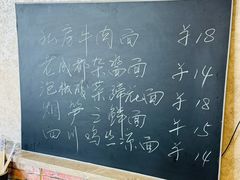 私房牛肉面 ¥18
老成都杂酱面 ¥14
泡椒酸菜蹄花面 ¥18
烟笋三鲜面 ¥15
四川鸡丝凉面 ¥14